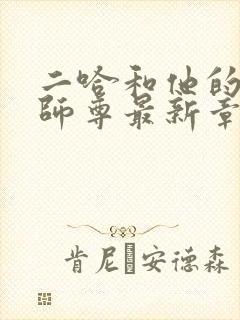 二哈和他的
师尊最新章
肯尼·安德森